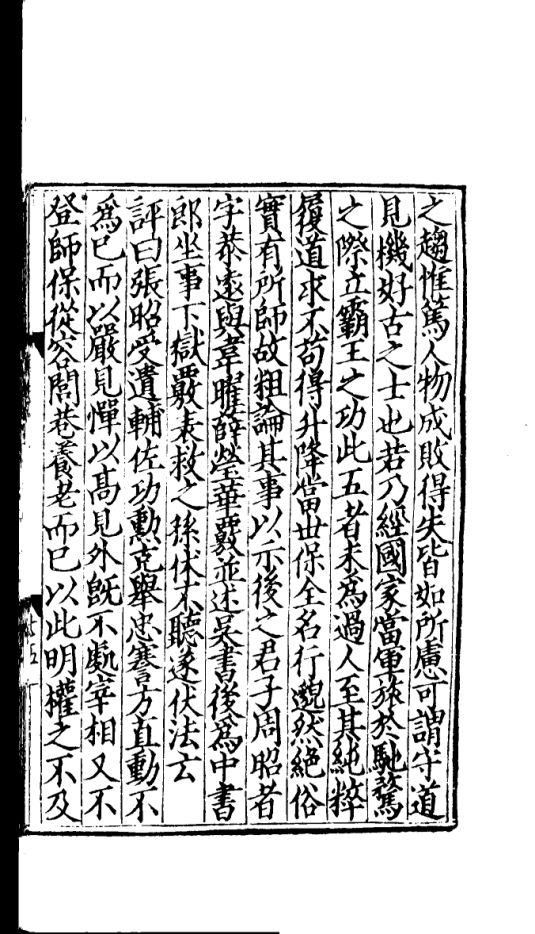 之趨惟篤人物成敗得失皆如所慮可謂守道
見機好古之士也若乃經國家當軍旅於馳騖
之際立霸王之功此五者未爲過人至其純粹
履道求不苟得升降當世保全名行邈然絕俗
實有所師故粗論其事以示後之君子周昭者
字恭遠與韋曜薛瑩華覈並述吳書後爲中書
郎坐事下獄覈表救之孫休不聽遂伏法云
評曰張昭受遺輔佐功勳克舉忠謇方直動不
爲己而以嚴見憚以高見外旣不處宰相又不
登師保從容閭巷養老而已以此明權之不及